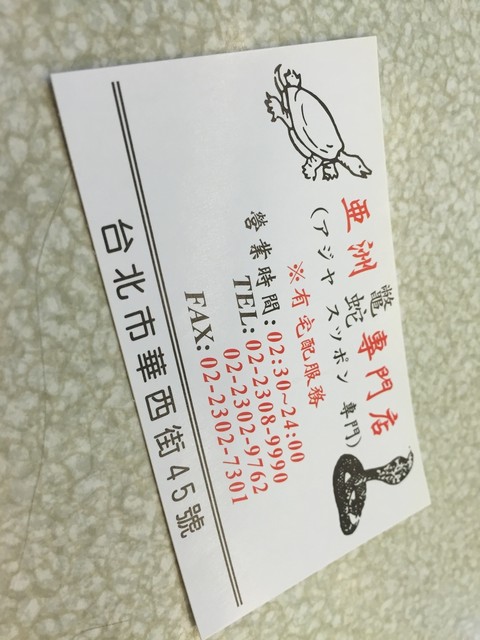 亜洲鱉蛇專門店
(アジヤ スッポン 專門)
※有宅配服務
營業時間:02:30~24:00
TEL:02-2308-9990
02-2302-9762
FAX:02-2302-7301
台北市華西街45號